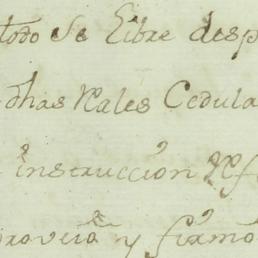 todo se libre desp
dhas Rales Cedula
instruccion Rf
proveió y firmó